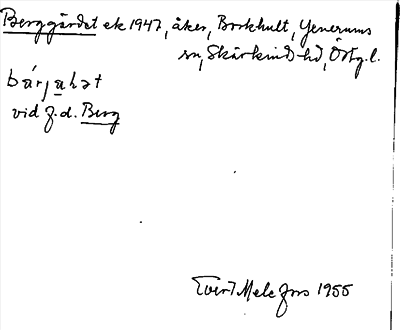 Berggärdet ek 1947, åker, Borkhult, Yxnerums
sn, Skärkinds hd, Östg.l.
vid f.d. Berg
Evert Melefors 1955